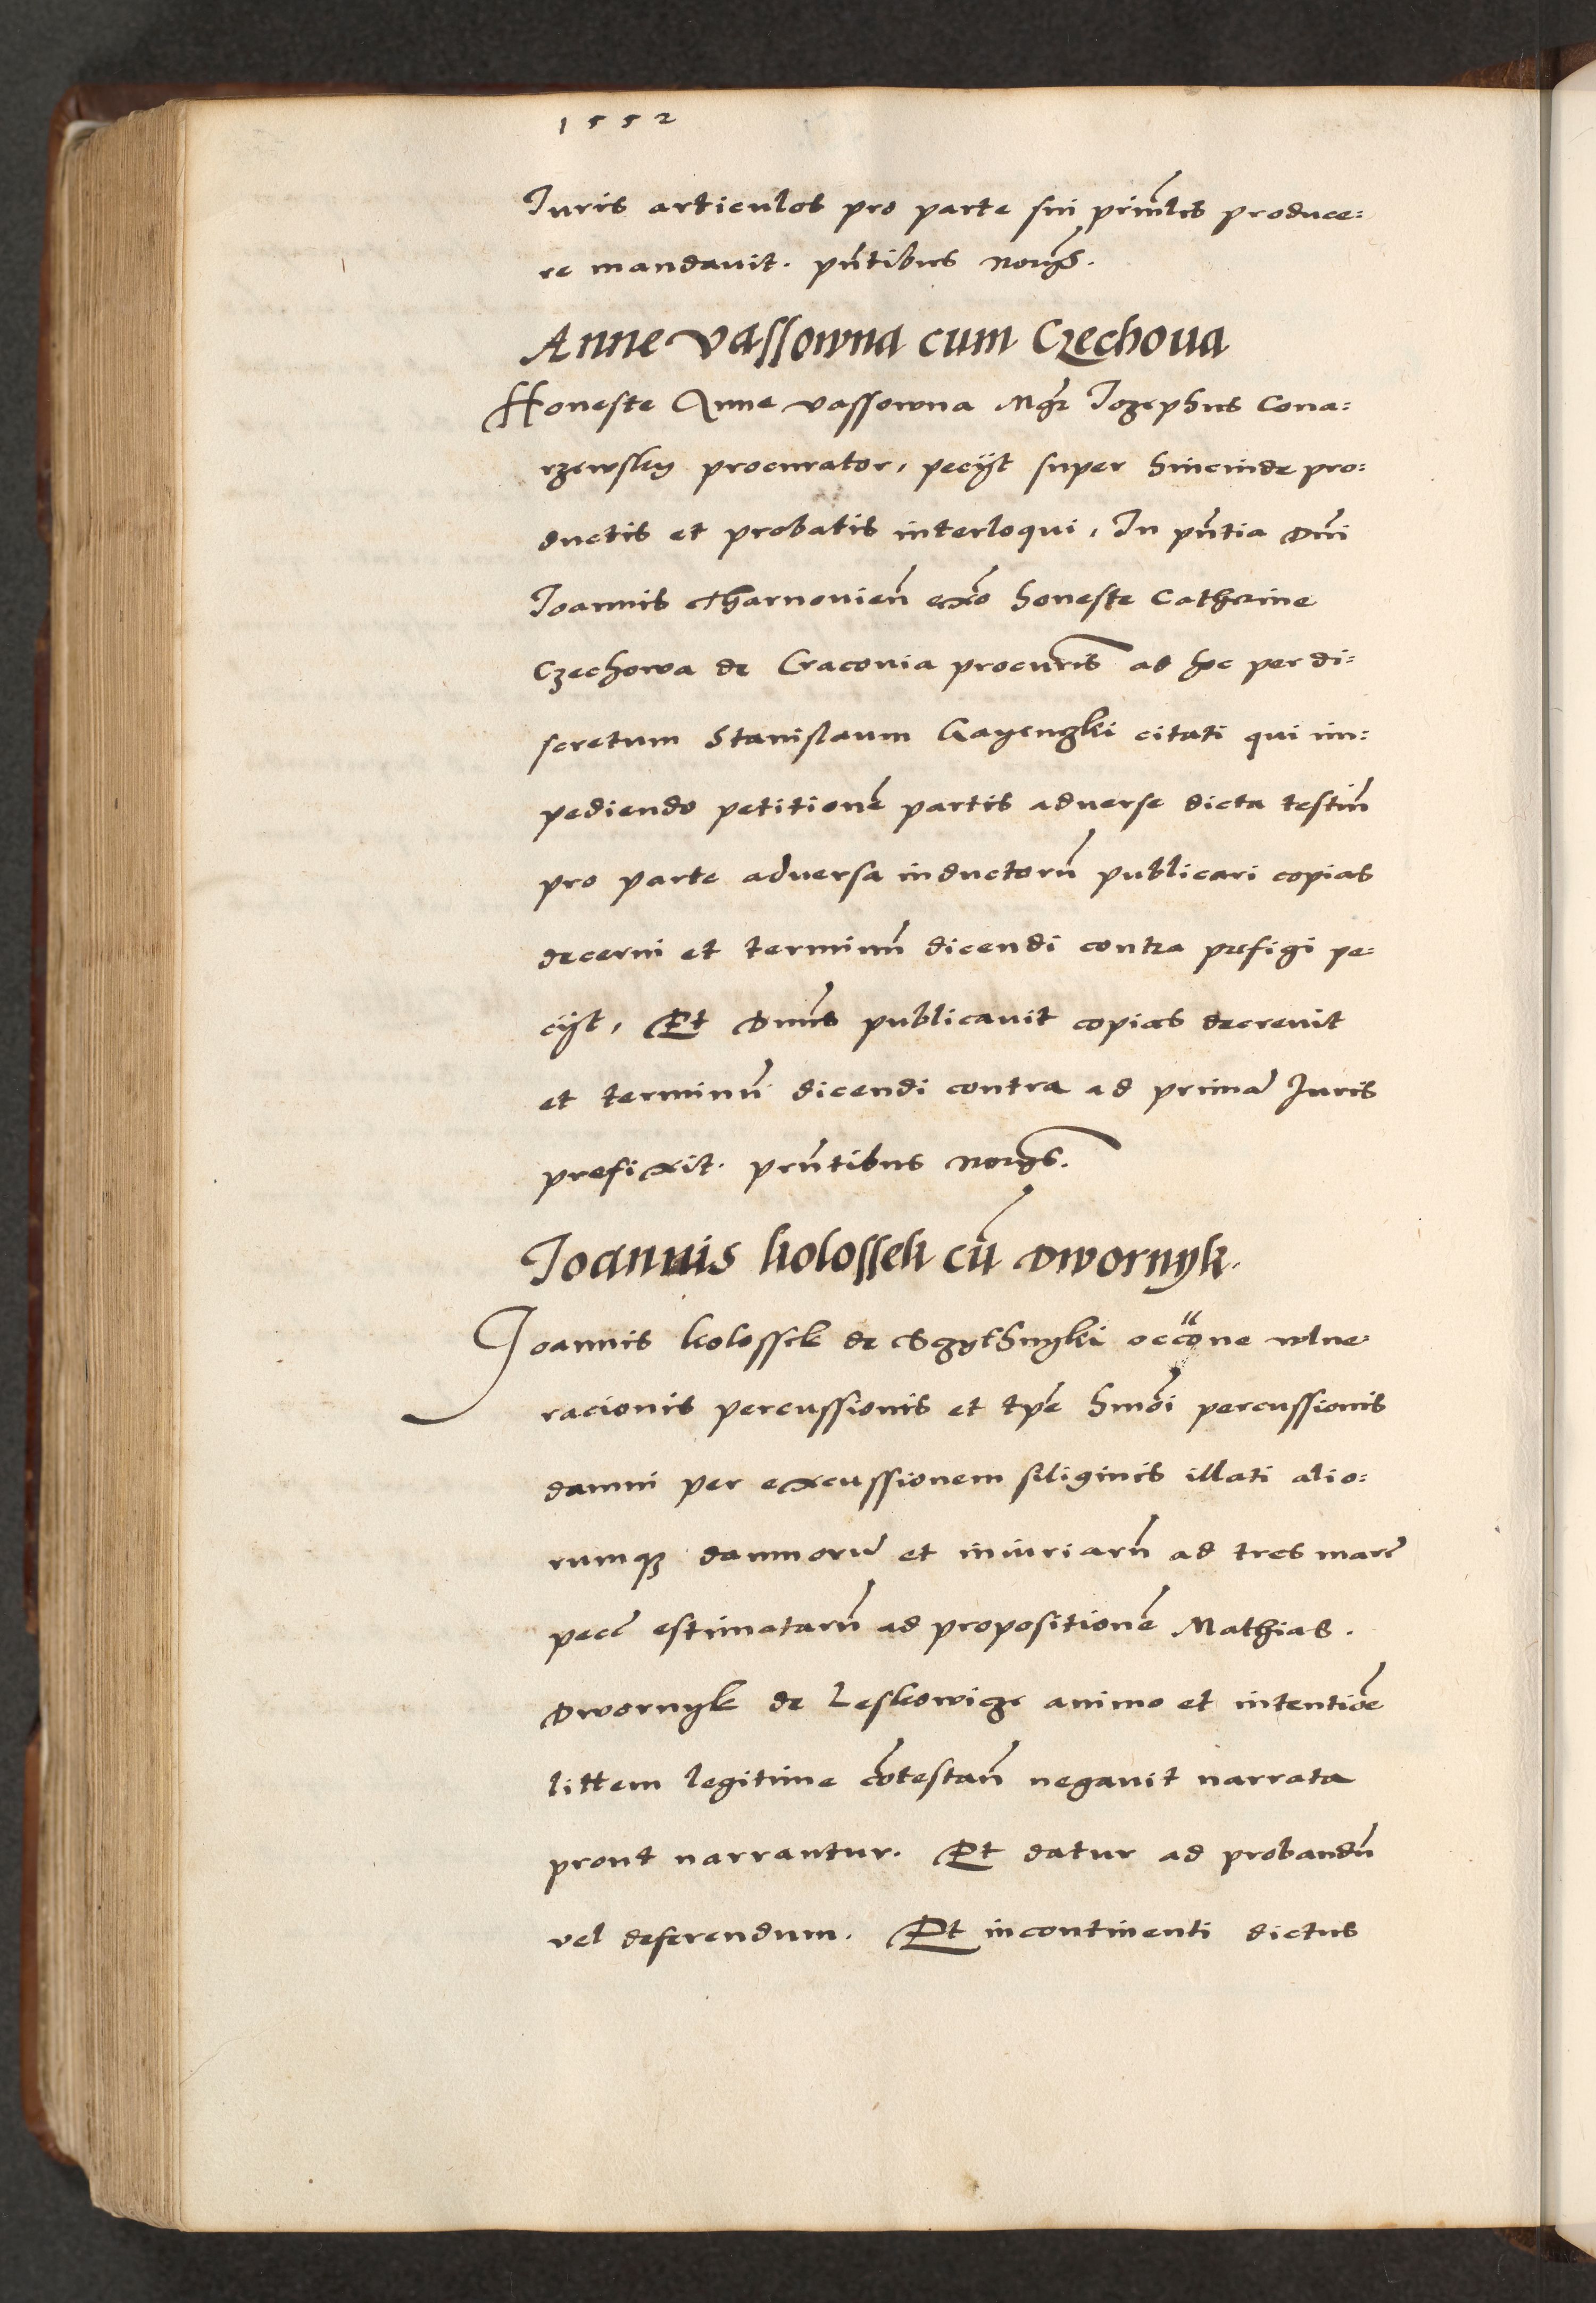 1552
Iuris articulos pro parte sui prin̄lis produce=
re mandavit. pn̄tibus nor̄ys.
Anne Vassowna cum Czechoua
Honeste Anne vassowna Mgr̄ Iozephus Cona=
rzewsky procurator, pecijt super hincinde pro=
ductis et probatis interloqui, In pn̄tia Dn̄i
Ioannis Tharnovien̄ ex̄o honeste Catherine
Czechowa de Cracovia procur̄is ad hoc per di=
scretum Stanislaum Gayenzki citati qui im=
pediendo petitionē partis adverse dicta testiū
pro parte adversa inductorū publicari copias
decerni et terminū dicendi contra prefigi pe=
cijt, Et Dn̄us publicavit copias decrevit
et terminū dicendi contra ad primā Iuris
prefixit. prn̄tibus norys.
Ioannis kolossek cū Dwornyk.
Ioannis kolossek de Sczythnyki occōne vlne=
racionis percussionis et tp̄e hmōi percussionis
damni per excussionem siliginis illati alio=
rumq3 damnorū et iniuriarū ad tres marc̄
pecc̄ estimatarū ad propositionē Mathias.
Dwornyk de Leskowicze animo et intentiōe
littem legitime cōtestan̄ negavit narrata
prout narrantur. Et datur ad probandū
vel deferendum. Et incontinenti dictus